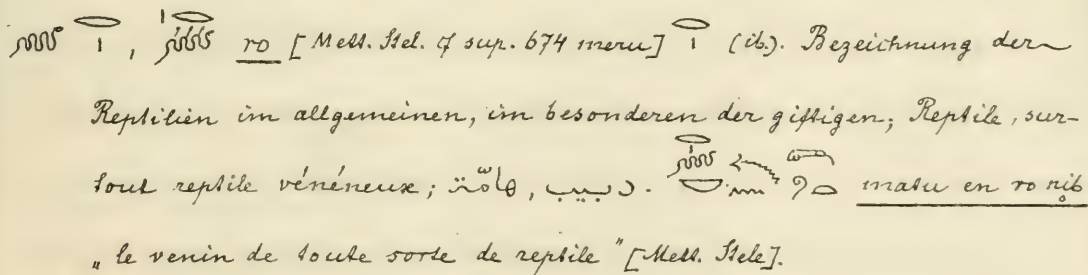 𓆙 𓂋𓏤, 𓂋𓏤𓆙 ro [Mett. Stel. cf sup. 674 meru] 𓂋𓏤 (ib.). Bezeichnung der
Reptilien im allgemeinen, im besonderen der giftigen; Reptile, sur-
tout reptile vénéneux; دبيب, هامّة. matu en ro nib
„le venin de toute sorte de reptile" [Mett. Stele].